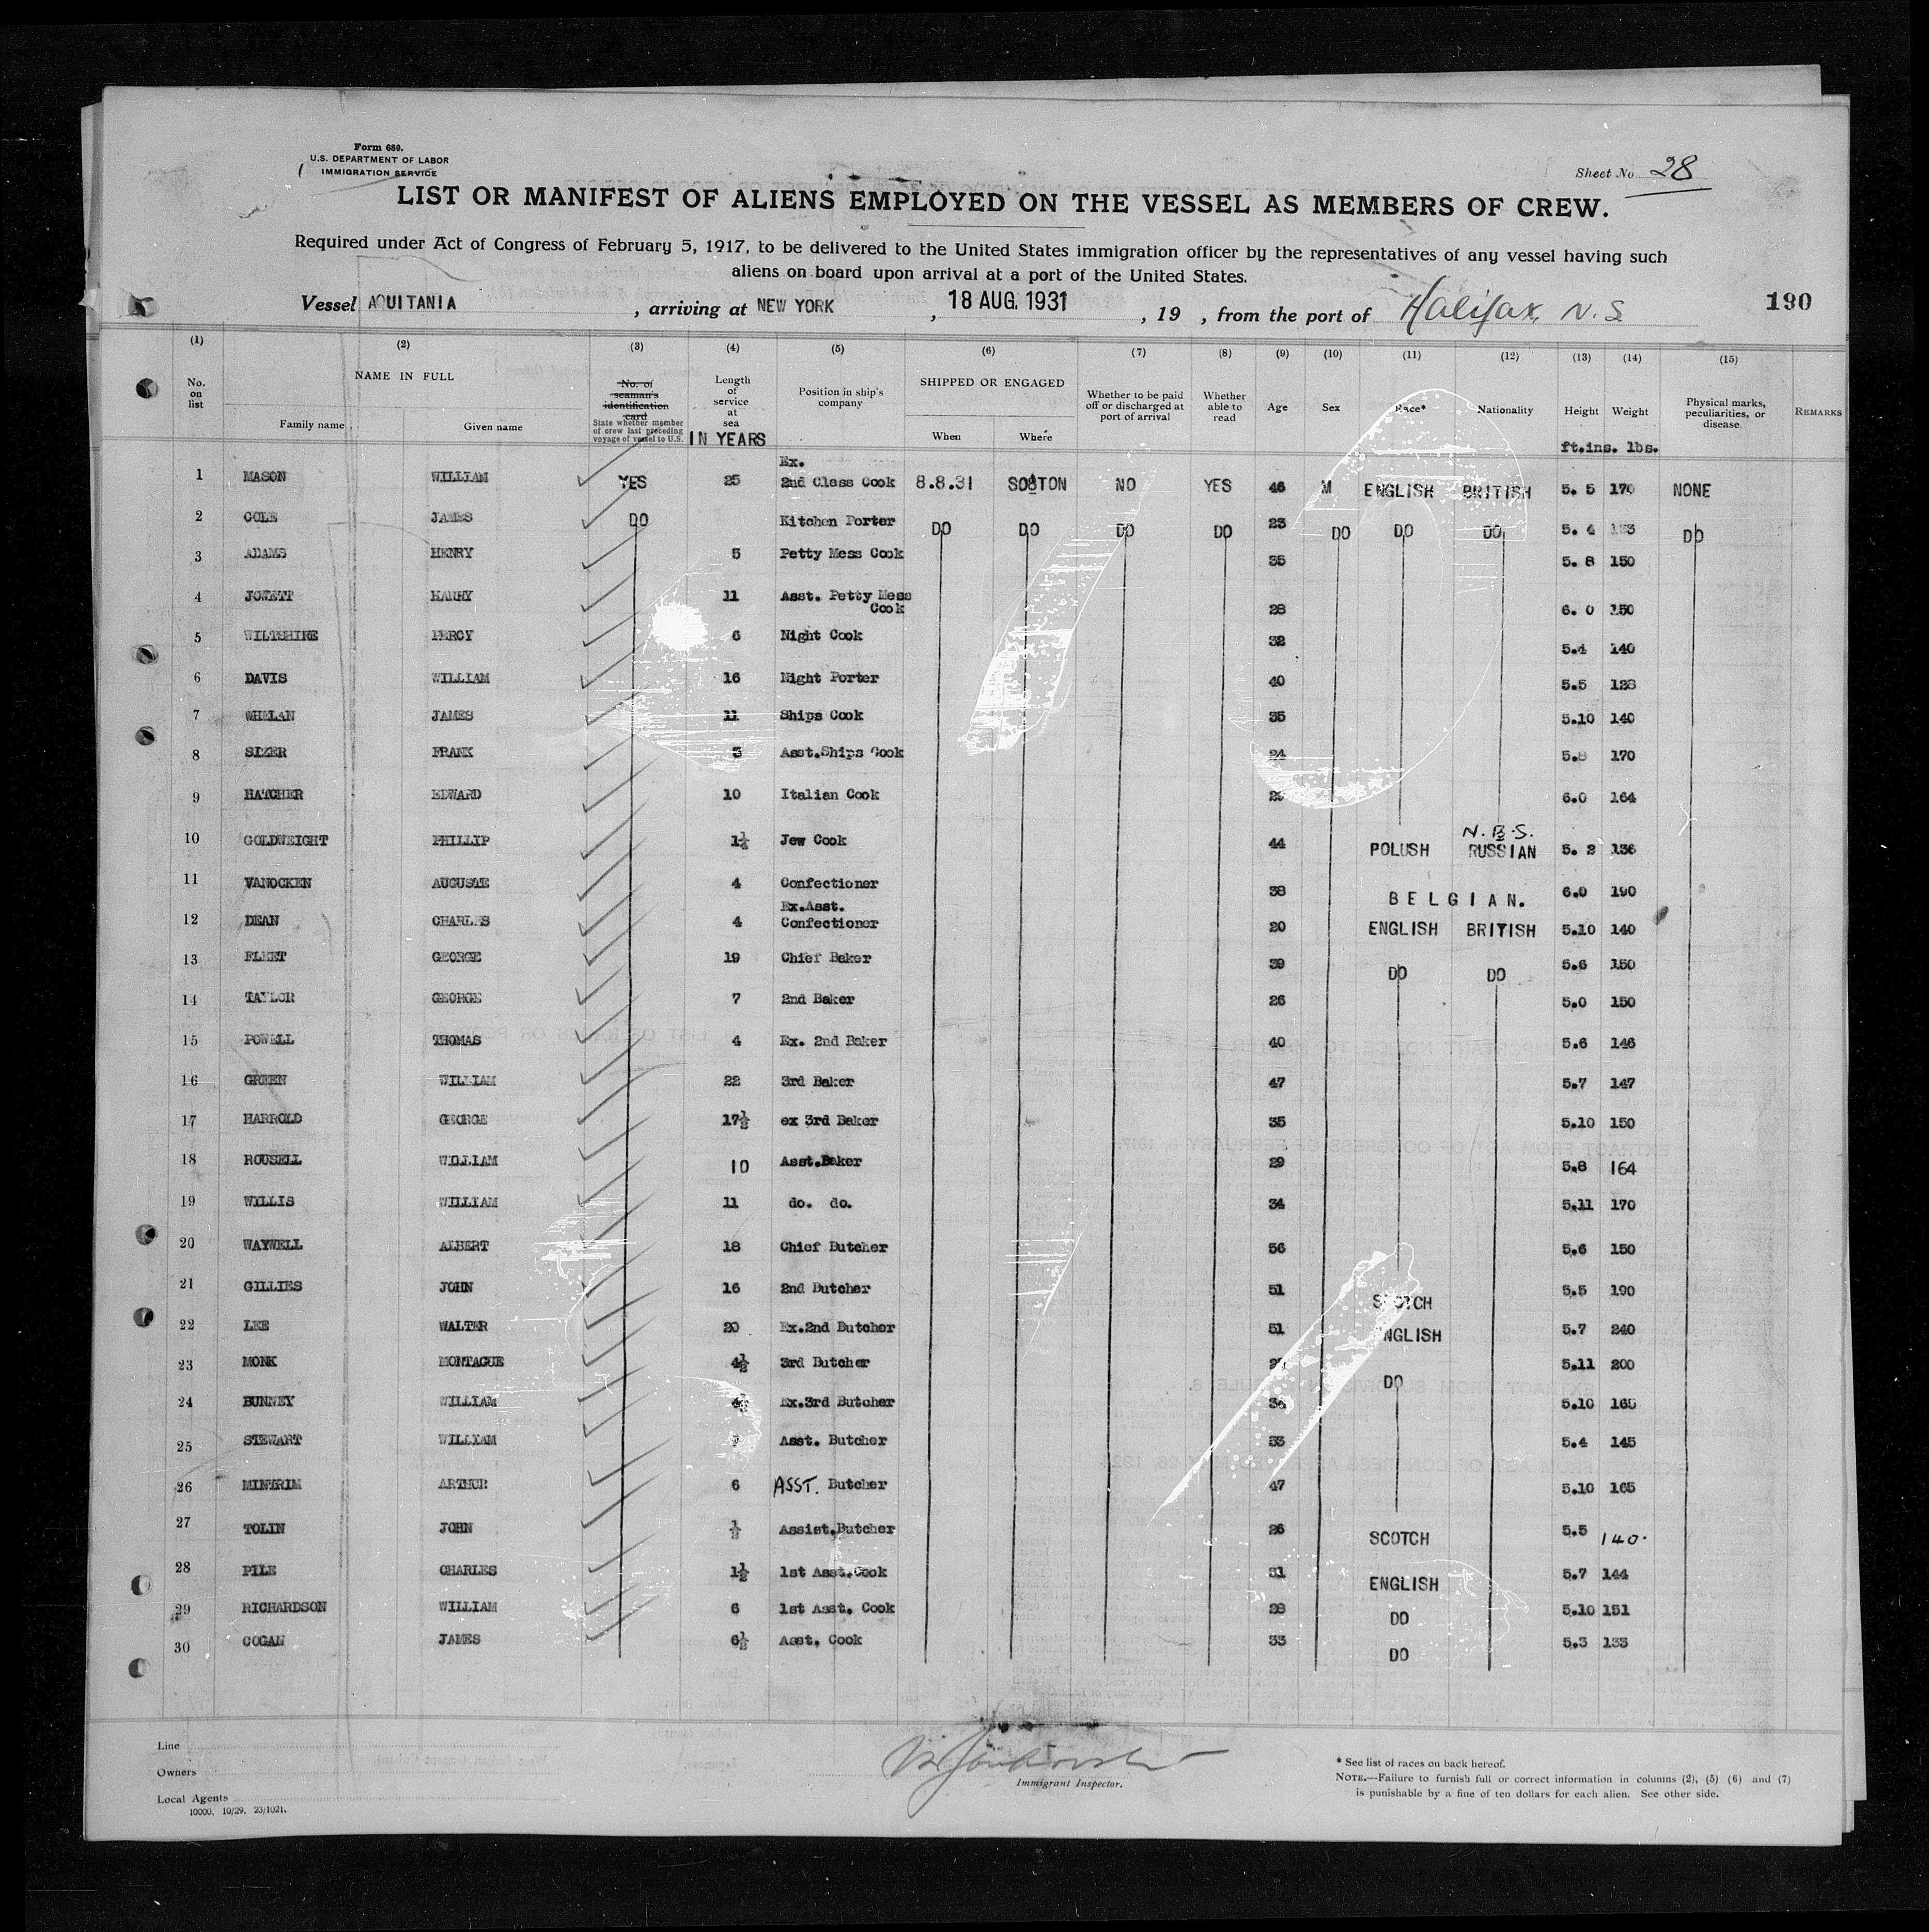 Form 680.
U.S. DEPARTMENT OF LABOR
IMMIGRATION SERVICE
Sheet No 28
LIST OR MANIFEST OF ALIENS EMPLOYED ON THE VESSEL AS MEMBERS OF CREW.
Required under Act of Congress of February 5, 1917, to be delivered to the United States immigration officer by the representatives of any vessel having such
aliens on board upon arrival at a port of the United States.
Vessel AQUITANIA, arriving at NEW YORK, 18 AUG. 1931, 19 , from the port of Halifax, N.S. 190
(1) (2) (3) (4) (5) (6) (7) (8) (9) (10) (11) (12) (13) (14) (15)
No. on list NAME IN FULL Family name Given name No. of seaman's identification card State whether member of crew last preceding voyage of vessel to U.S. Length of service at sea IN YEARS Position in ship's company SHIPPED OR ENGAGED When Where Whether to be paid off or discharged at port of arrival Whether able to read Age Sex Race* Nationality Height Weight ft.ins. lbs. Physical marks, peculiarities, or disease REMARKS
1 MASON WILLIAM YES 25 Ex. 2nd Class Cook 8.8.31 SOTON NO YES 46 M ENGLISH BRITISH 5. 5 170 NONE
2 COLE JAMES DO Kitchen Porter DO DO DO DO 23 DO DO DO 5. 4 DO
3 ADAMS HENRY 5 Petty Mess Cook 35 5. 8 150
4 JOWETT HARRY 11 Asst. Petty Mess Cook 28 6. 0 150
5 WILTSHIRE PERCY 6 Night Cook 32 5.4 140
6 DAVIS WILLIAM 16 Night Porter 40 5.5 128
7 WHELAN JAMES 11 Ships Cook 35 5.10 140
8 SIZER FRANK Asst.Ships Cook 24 5.8 170
9 HATCHER EDWARD 10 Italian Cook 6.0 164
10 GOLDWEIGHT PHILLIP 1¼ Jew Cook 44 POLUSH N.B.S. RUSSIAN 5. 2 136
11 VANOCKEN AUGUSTE 4 Confectioner 38 BELGIAN. 6.0 190
12 DEAN CHARLES 4 Ex.Asst. Confectioner 20 ENGLISH BRITISH 5.10 140
13 FLEET GEORGE 19 Chief Baker 39 DO DO 5.6 150
14 TAYLOR GEORGE 7 2nd Baker 26 5.0 150
15 POWELL THOMAS 4 Ex. 2nd Baker 40 5.6 146
16 GREEN WILLIAM 22 3rd Baker 47 5.7 147
17 HARROLD GEORGE 17½ ex 3rd Baker 35 5.10 150
18 ROUSELL WILLIAM 10 Asst.Baker 29 5.8 164
19 WILLIS WILLIAM 11 do. do. 34 5.11 170
20 WAYWELL ALBERT 18 Chief Butcher 56 5.6 150
21 GILLIES JOHN 16 2nd Butcher 51 SCOTCH 5.5 190
22 LEE WALTER 20 Ex.2nd Butcher 51 ENGLISH 5.7 240
23 MONK MONTAGUE 4½ 3rd Butcher DO 5.11 200
24 BUNNEY WILLIAM Ex.3rd Butcher 5.10 165
25 STEWART WILLIAM Asst. Butcher 5.4 145
26 MINTRIM ARTHUR 6 ASST. Butcher 47 5.10 165
27 TOLIN JOHN ½ Assist.Butcher 26 SCOTCH 5.5 140.
28 PILE CHARLES 1½ 1st Asst.Cook 31 ENGLISH 5.7 144
29 RICHARDSON WILLIAM 6 1st Asst. Cook 28 DO 5.10 151
30 COGAN JAMES 6½ Asst. Cook 33 DO 5.3 133
Line
Owners
Local Agents
10000. 10/29. 23/1021.
Immigrant Inspector.
* See list of races on back hereof.
NOTE.—Failure to furnish full or correct information in columns (2), (5) (6) and (7)
is punishable by a fine of ten dollars for each alien. See other side.